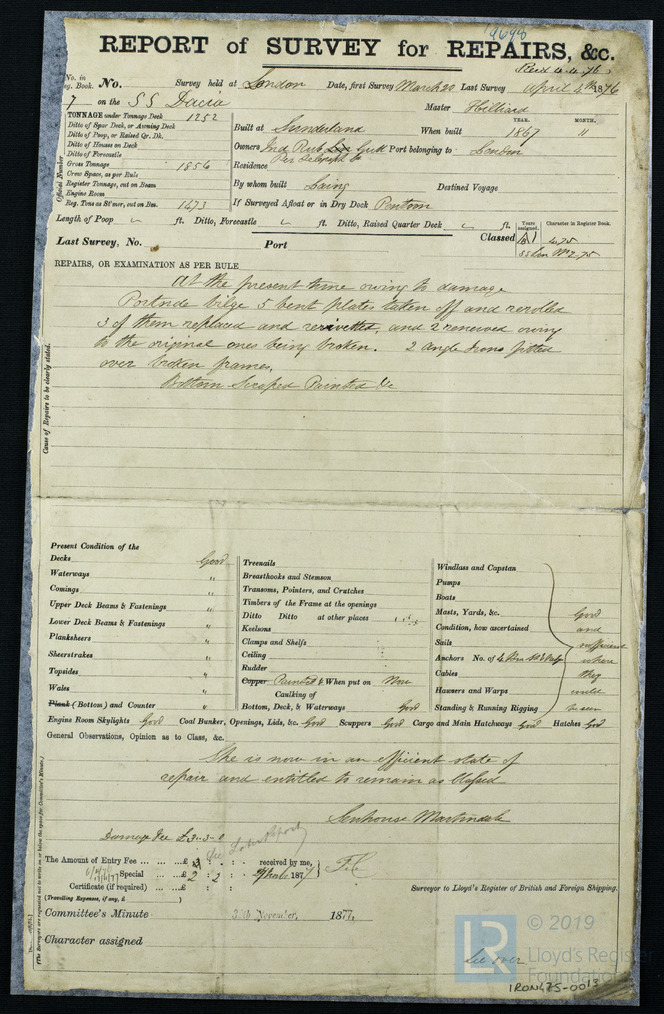 9698
REPORT of SURVEY for REPAIRS, &c.
Recd 4.4.76
No. in Reg. Book. No. Survey held at London Date, first Survey March 20 Last Survey April 4th 1876
7 on the SS Dacia Master Hilliard
TONNAGE under Tonnage Deck 1252
Ditto of Spar Deck, or Awning Deck
Ditto of Poop, or Raised Qr. Dk.
Ditto of Houses on Deck
Ditto of Forecastle
Gross Tonnage 1856
Crew Space, as per Rule
Register Tonnage, out on Beam
Engine Room
Reg. Tons as St'mer, cut on Bm. 1473
Official Number
YEAR. MONTH.
Built at Sunderland When built 1867 11
Owners Ind Rub Gutt Port belonging to London
Residence Per Telegraph Co
By whom built Laing Destined Voyage
If Surveyed Afloat or in Dry Dock
Length of Poop ft. Ditto, Forecastle ft. Ditto, Raised Quarter Deck ft.
Years assigned. Character in Register Book.
Last Survey, No. Port Classed A1 4.75
REPAIRS, OR EXAMINATION AS PER RULE
At the present time owing to damage
Portside bilge 5 bent plates taken off and rerolled
3 of them replaced and rerivetted, and 2 renewed owing
to the original ones being broken. 2 Angle Irons fitted
over broken frames,
Bottom Scraped Painted &c
Cause of Repairs to be clearly stated.
Present Condition of the
Decks Good
Waterways "
Comings "
Upper Deck Beams & Fastenings "
Lower Deck Beams & Fastenings "
Planksheers "
Sheerstrakes "
Topsides "
Wales "
Plank (Bottom) and Counter "
Treenails
Breasthooks and Stemson
Transoms, Pointers, and Crutches
Timbers of the Frame at the openings
Ditto Ditto at other places
Keelsons
Clamps and Shelfs
Ceiling
Rudder
Copper Painted & When put on Now
Caulking of
Bottom, Deck, & Waterways Good
Windlass and Capstan
Pumps
Boats
Masts, Yards, &c.
Condition, how ascertained
Sails
Anchors No. of
Cables
Hawsers and Warps
Standing & Running Rigging
Good
and
sufficient
where
they
could
be seen
Engine Room Skylights Good Coal Bunker, Openings, Lids, &c. Good Scuppers Good Cargo and Main Hatchways Good Hatches Good
General Observations, Opinion as to Class, &c.
She is now in an efficient state of
repair and entitled to remain as Classed
Senhouse Martindale
Damage Fee £3..3-0
See Later Report
The Amount of Entry Fee ... ... ...£ : : received by me,
Special ... ...£ 2 : 2 : 187
Certificate (if required) ... ...£ : :
(Travelling Expenses, if any, £ )
Surveyor to Lloyd's Register of British and Foreign Shipping.
Committee's Minute 30th November, 1877,
Character assigned
See over
(The Surveyors are requested not to write on or below the space for Committee's Minute.)
LR
© 2019
Lloyd's Register
Foundation
IRON475-0013